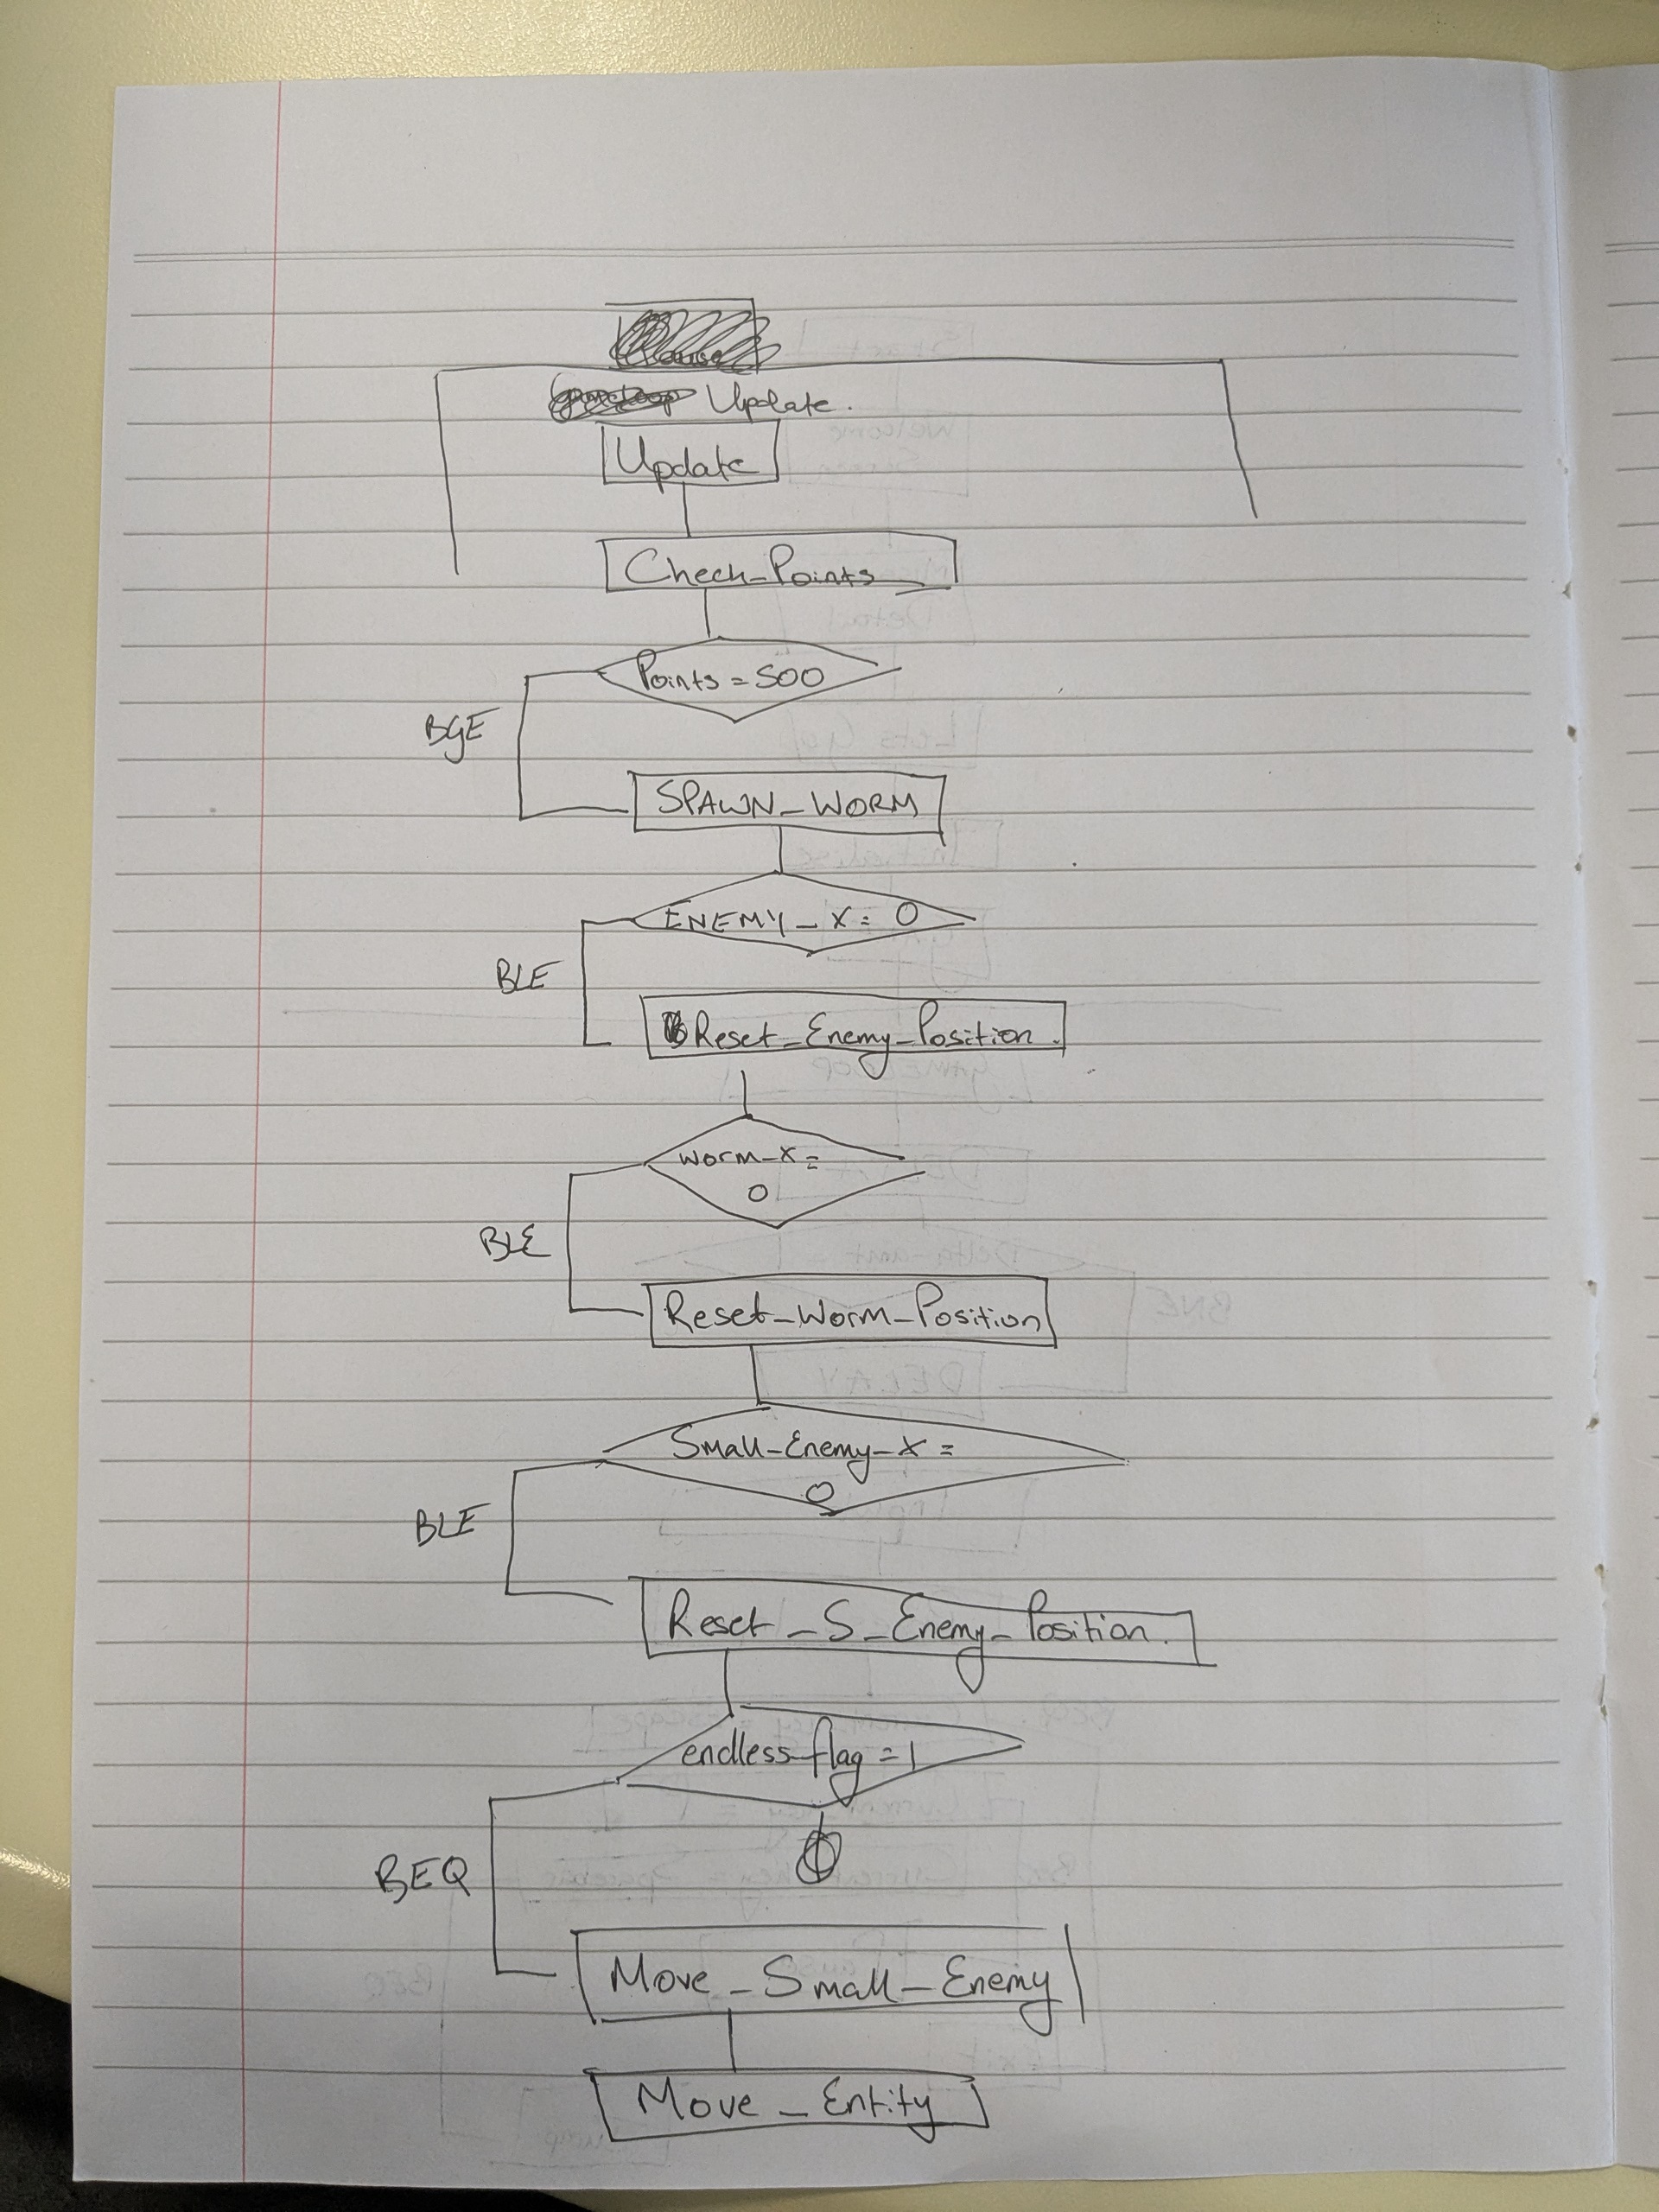 Update.
Update
Check_Points
Points = 500
BGE
SPAWN_WORM
ENEMY_X = 0
BLE
Reset_Enemy_Position.
worm_x =
0
BLE
Reset_Worm_Position
Small_Enemy_X =
0
BLE
Reset_S_Enemy_Position.
endless_flag = 1
BEQ
Move_Small_Enemy
Move_Entity